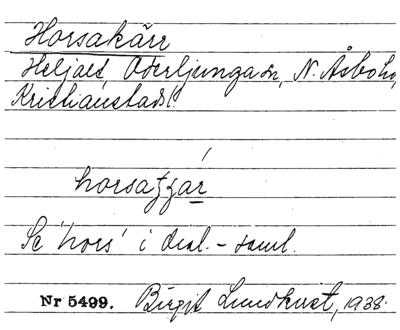 Horsakärr
Heljalt, Oderljunga sn, N. Åsbo hd,
Kristianstads l.
horsaʒʒar
Se 'hors' i dial.-saml.
Nr 5499. Birgit Lundkvist, 1938.